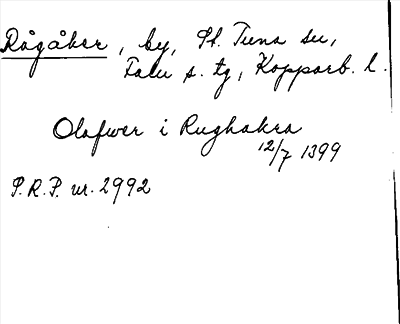 Rågåker, by, St. Tuna sn,
Falu s. tg, Kopparb. l.
Olafwer i Rughakra
12/7 1399
S.R.P. nr. 2992